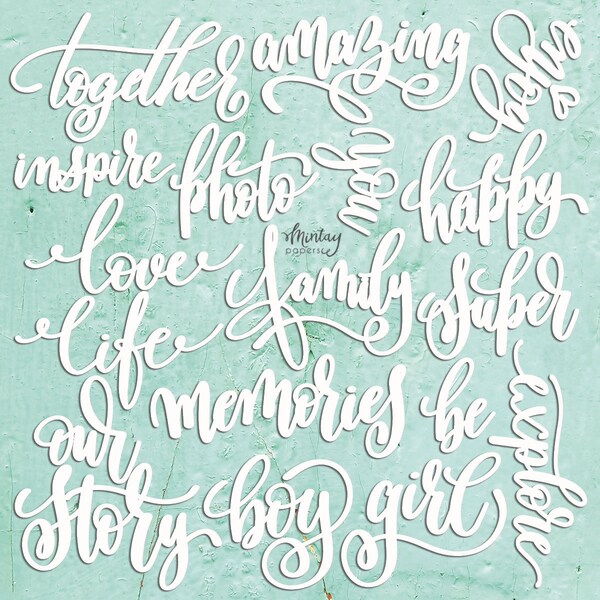 together
amazing
inspire
photo
you
happy
Mintay
papers
love
family
super
life
memories
be
explore
our
story
boy
girl